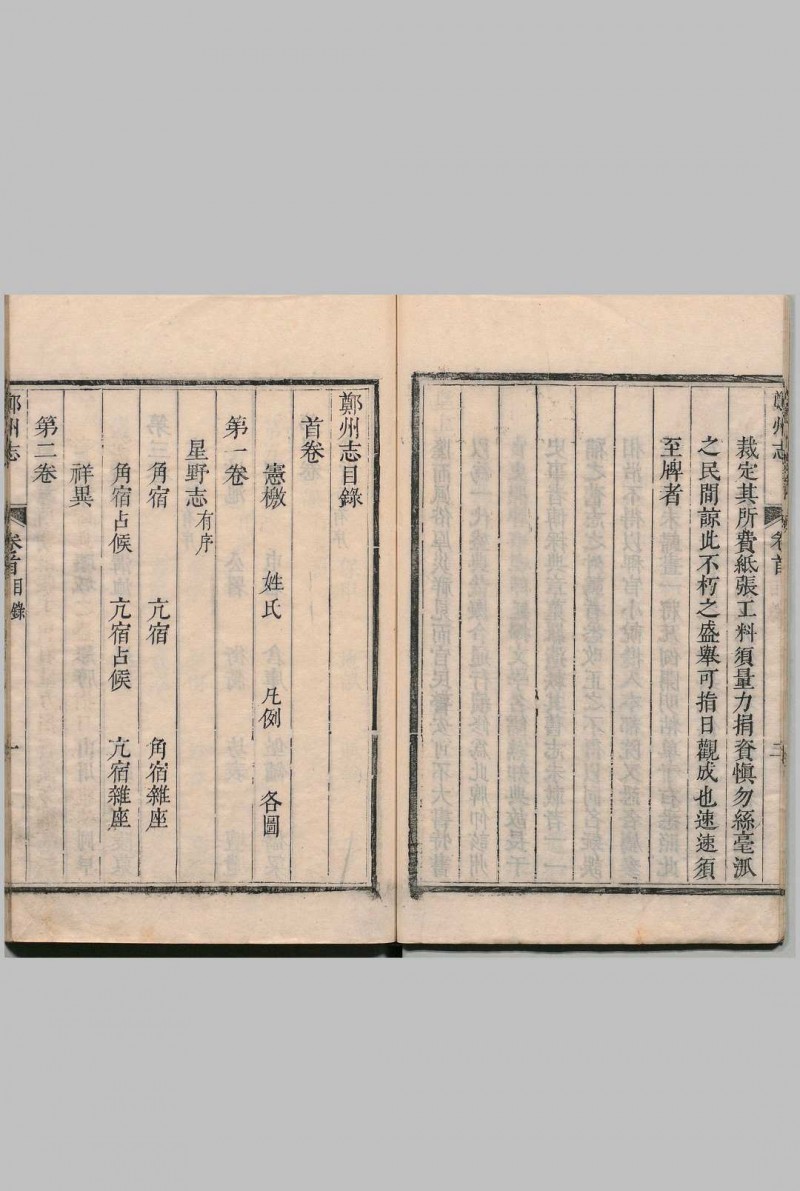 鄭州志
卷首
二
裁定其所費紙張工料須量力捐資慎勿絲毫派
之民間諒此不朽之盛舉可指日觀成也速速須
至牌者
鄭州志目錄
首卷
憲檄 姓氏 凡例 各圖
第一卷
星野志有序
角宿 亢宿 角宿雜座
角宿占候 亢宿占候 亢宿雜座
祥異
第二卷
鄭州志
卷首目錄
一